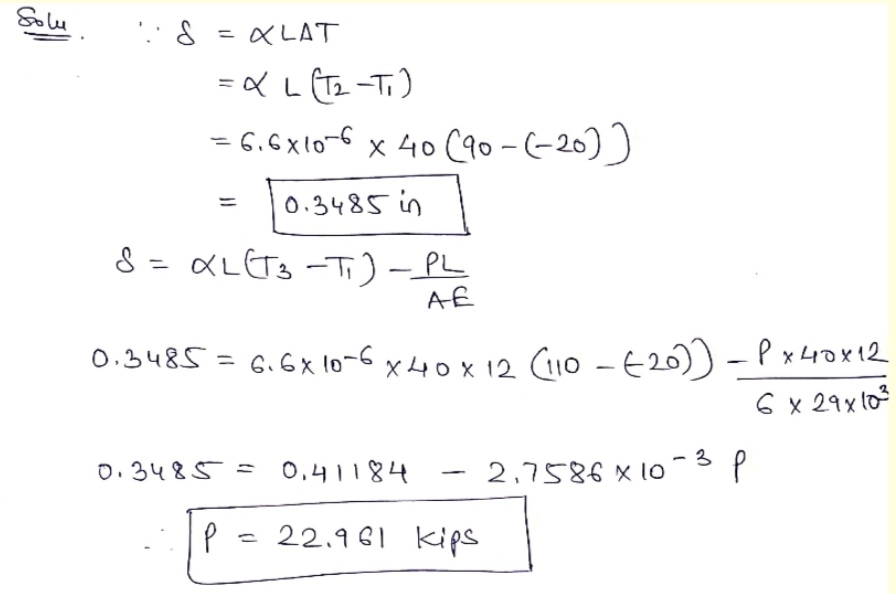 Solu. ∵ δ = αLΔT
= α L (T₂ - T₁)
= 6.6×10⁻⁶ × 40 (90 - (-20))
= 0.3485 in
δ = αL(T₃ - T₁) - PL/AE
0.3485 = 6.6×10⁻⁶ × 40 × 12 (110 - (-20)) - P×40×12/6 × 29×10³
0.3485 = 0.41184 - 2.7586×10⁻³ P
∴ P = 22.961 kips